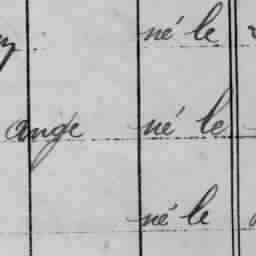 né le
ange né le
né le